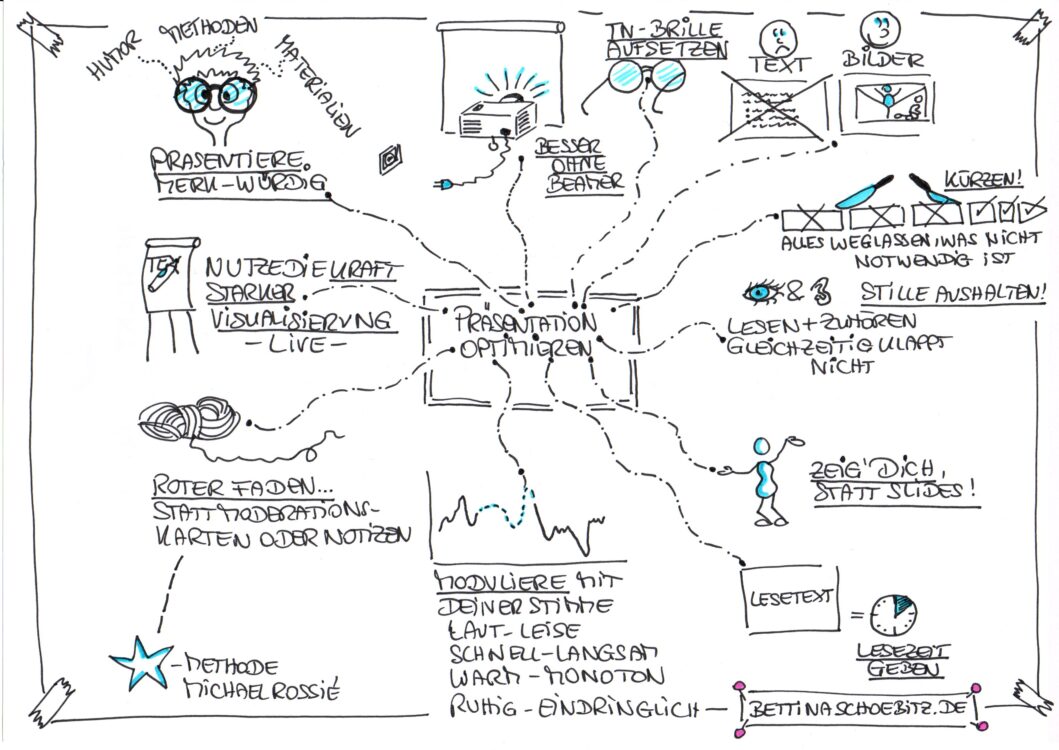 HUMOR
METHODEN
MATERIALIEN
PRÄSENTIERE
MERK-WÜRDIG
BESSER
OHNE
BEAMER
TN-BRILLE
AUFSETZEN
TEXT
BILDER
KÜRZEN!
ALLES WEGLASSEN, WAS NICHT
NOTWENDIG IST
TEX
NUTZE DIE KRAFT
STARKER
VISUALISIERUNG
-LIVE-
PRÄSENTATION
OPTIMIEREN
& STILLE AUSHALTEN!
LESEN + ZUHÖREN
GLEICHZEITIG KLAPPT
NICHT
ROTER FADEN...
STATT MODERATIONS-
KARTEN ODER NOTIZEN
ZEIG' DICH,
STATT SLIDES!
MODULIERE MIT
DEINER STIMME
LAUT-LEISE
SCHNELL-LANGSAM
WARM-MONOTON
RUHIG-EINDRINGLICH
LESETEXT
=
LESEZEIT
GEBEN
-METHODE
MICHAEL ROSSIÉ
BETTINASCHOEBITZ.DE